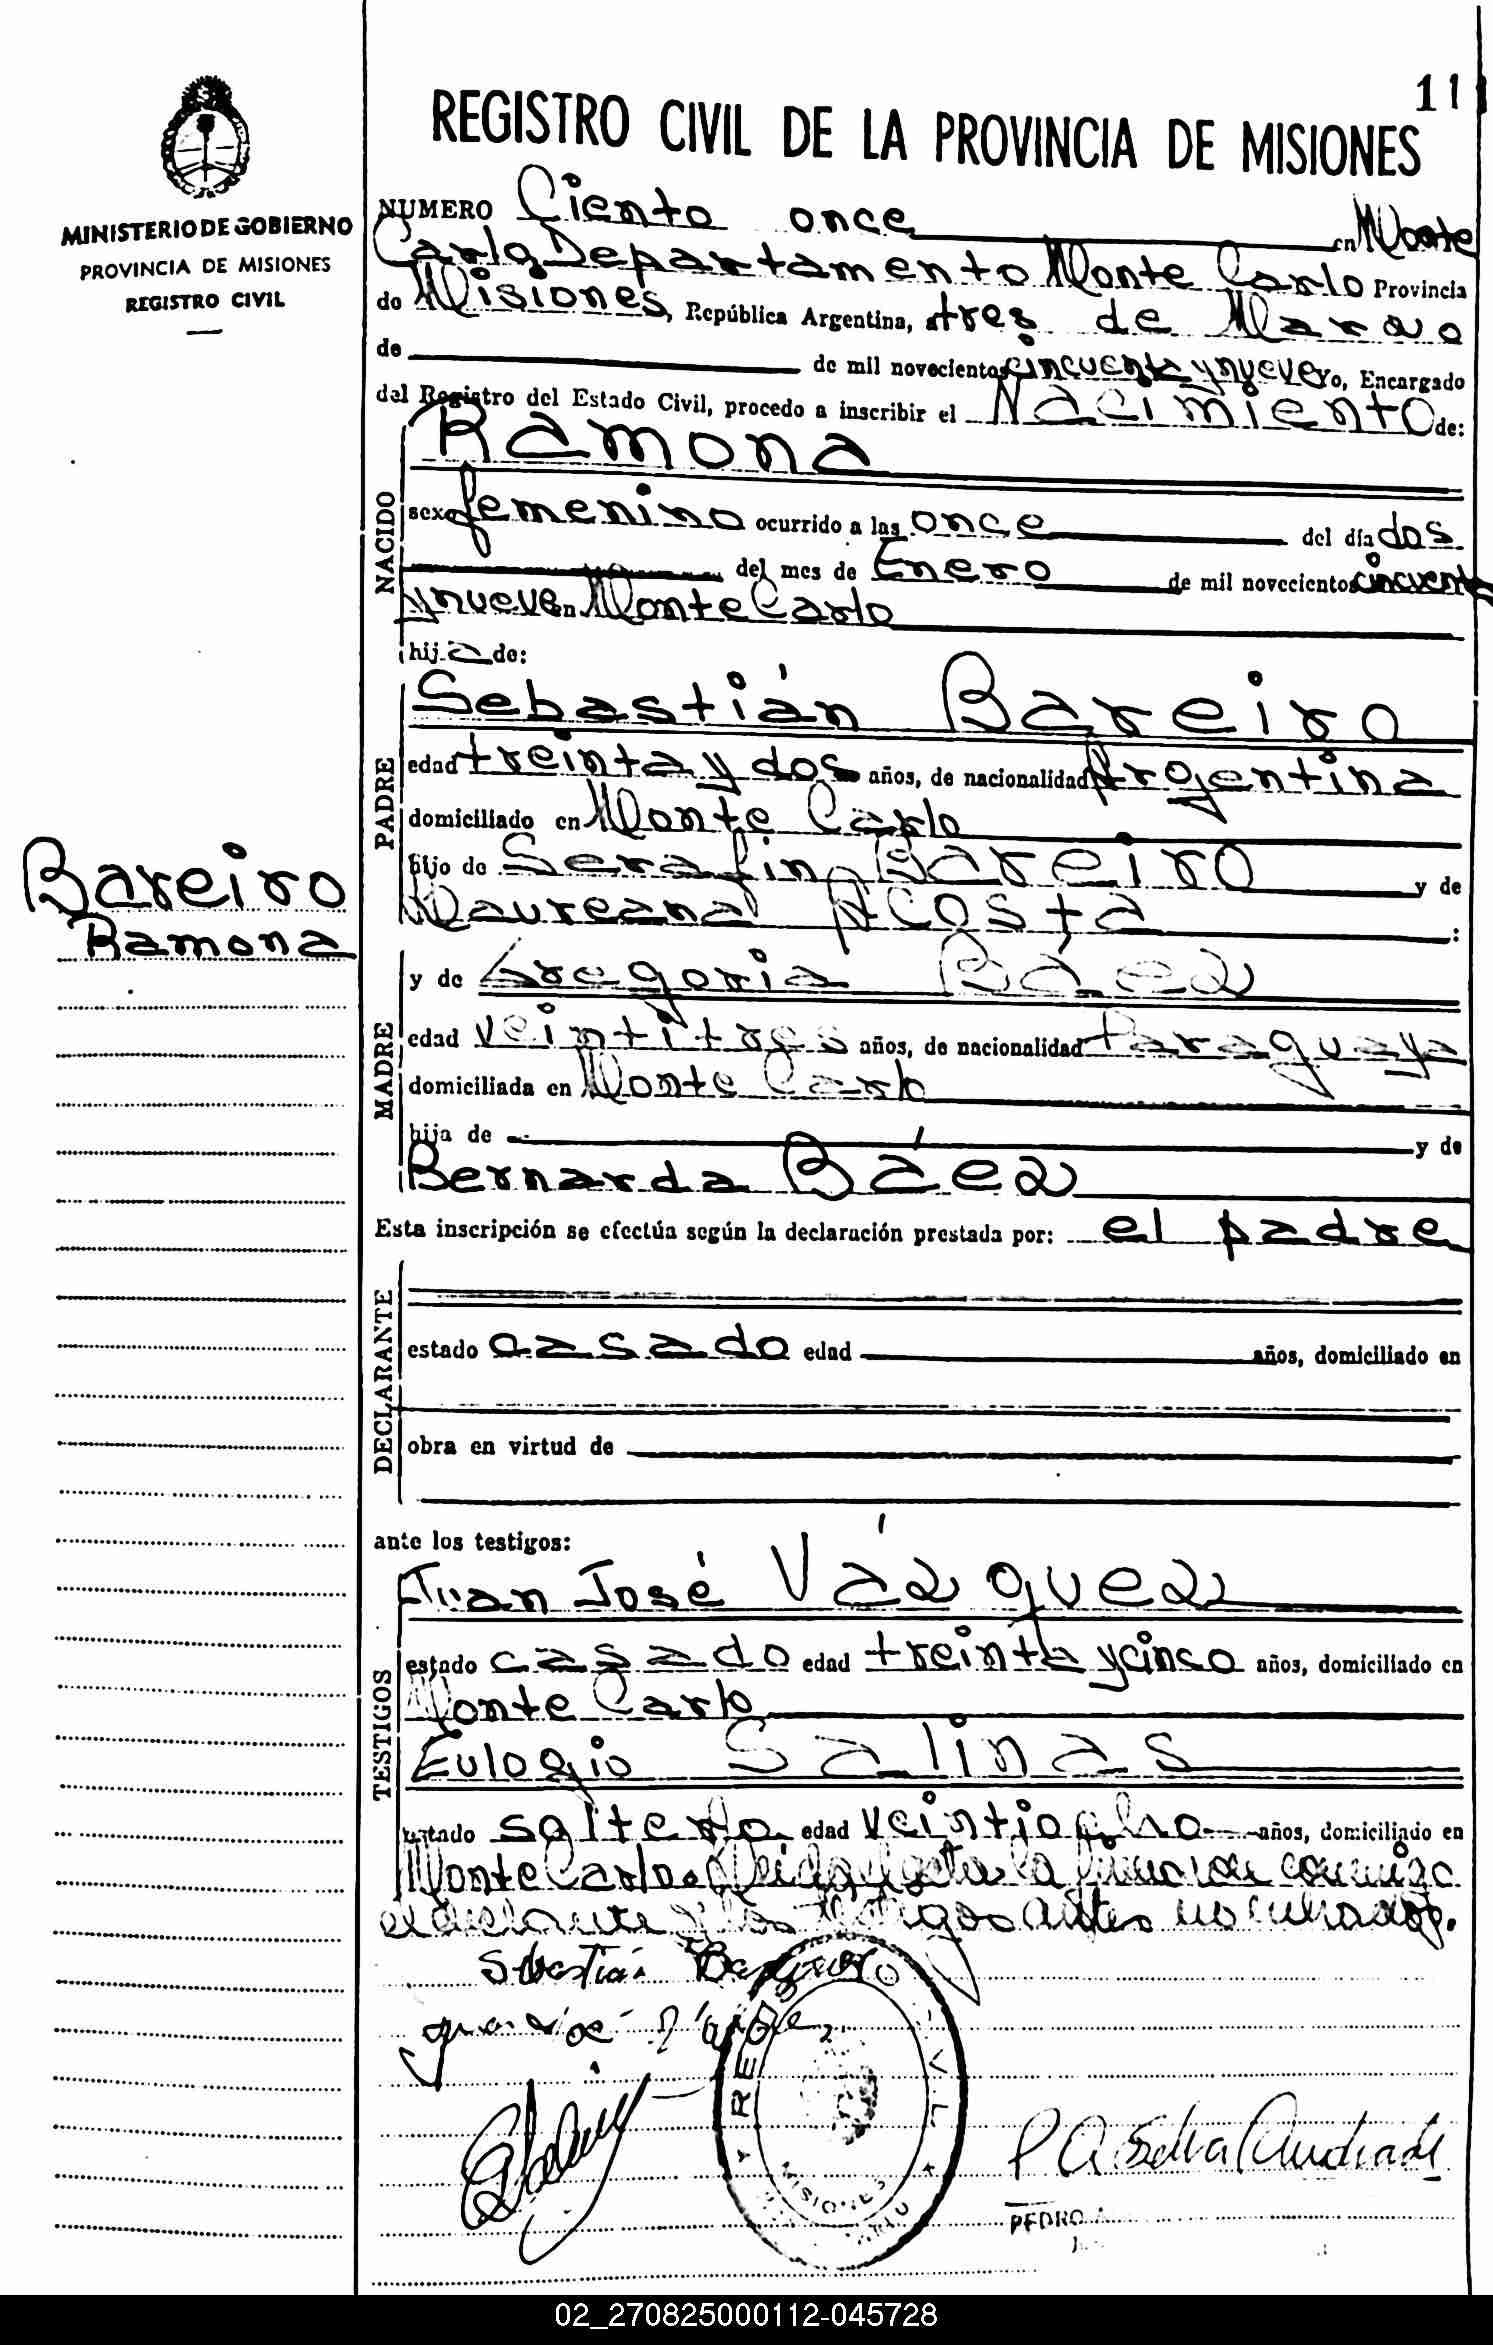 11
REGISTRO CIVIL DE LA PROVINCIA DE MISIONES
MINISTERIO DE GOBIERNO
PROVINCIA DE MISIONES
REGISTRO CIVIL
NUMERO Ciento once en Monte
Carlo Departamento Monte Carlo Provincia
de Misiones, República Argentina, a tres de Marzo
de de mil novecientos cincuenta y nueve Yo, Encargado
del Registro del Estado Civil, procedo a inscribir el Nacimiento de:
NACIDO
Ramona
sexo femenino ocurrido a las once del día dos
del mes de Enero de mil novecientos cincuenta
y nueve en Monte Carlo
hija de:
PADRE
Sebastián Bareiro
edad treinta y dos años, de nacionalidad Argentina
domiciliado en Monte Carlo
hijo de Serafín Bareiro y de
Maureana Acosta :
Bareiro
Ramona
MADRE
y de Gregoria Báez
edad veintitres años, de nacionalidad Paraguaya
domiciliada en Monte Carlo
hija de y de
Bernarda Báez
Esta inscripción se efectúa según la declaración prestada por: el padre
DECLARANTE
estado casado edad años, domiciliado en
obra en virtud de
ante los testigos:
TESTIGOS
Juan José Vázquez
estado casado edad treinta y cinco años, domiciliado en
Monte Carlo
Eulogio Salinas
estado soltero edad veintiocho años, domiciliado en
Monte Carlo. Leida el acta la firman conmigo
el declarante y los testigos antes nombrados.
Sebastián Bareiro
Juan José Vázquez
REGISTRO CIVIL
MISIONES
P A Silva Andrade
PEDRO A.
02_270825000112-045728